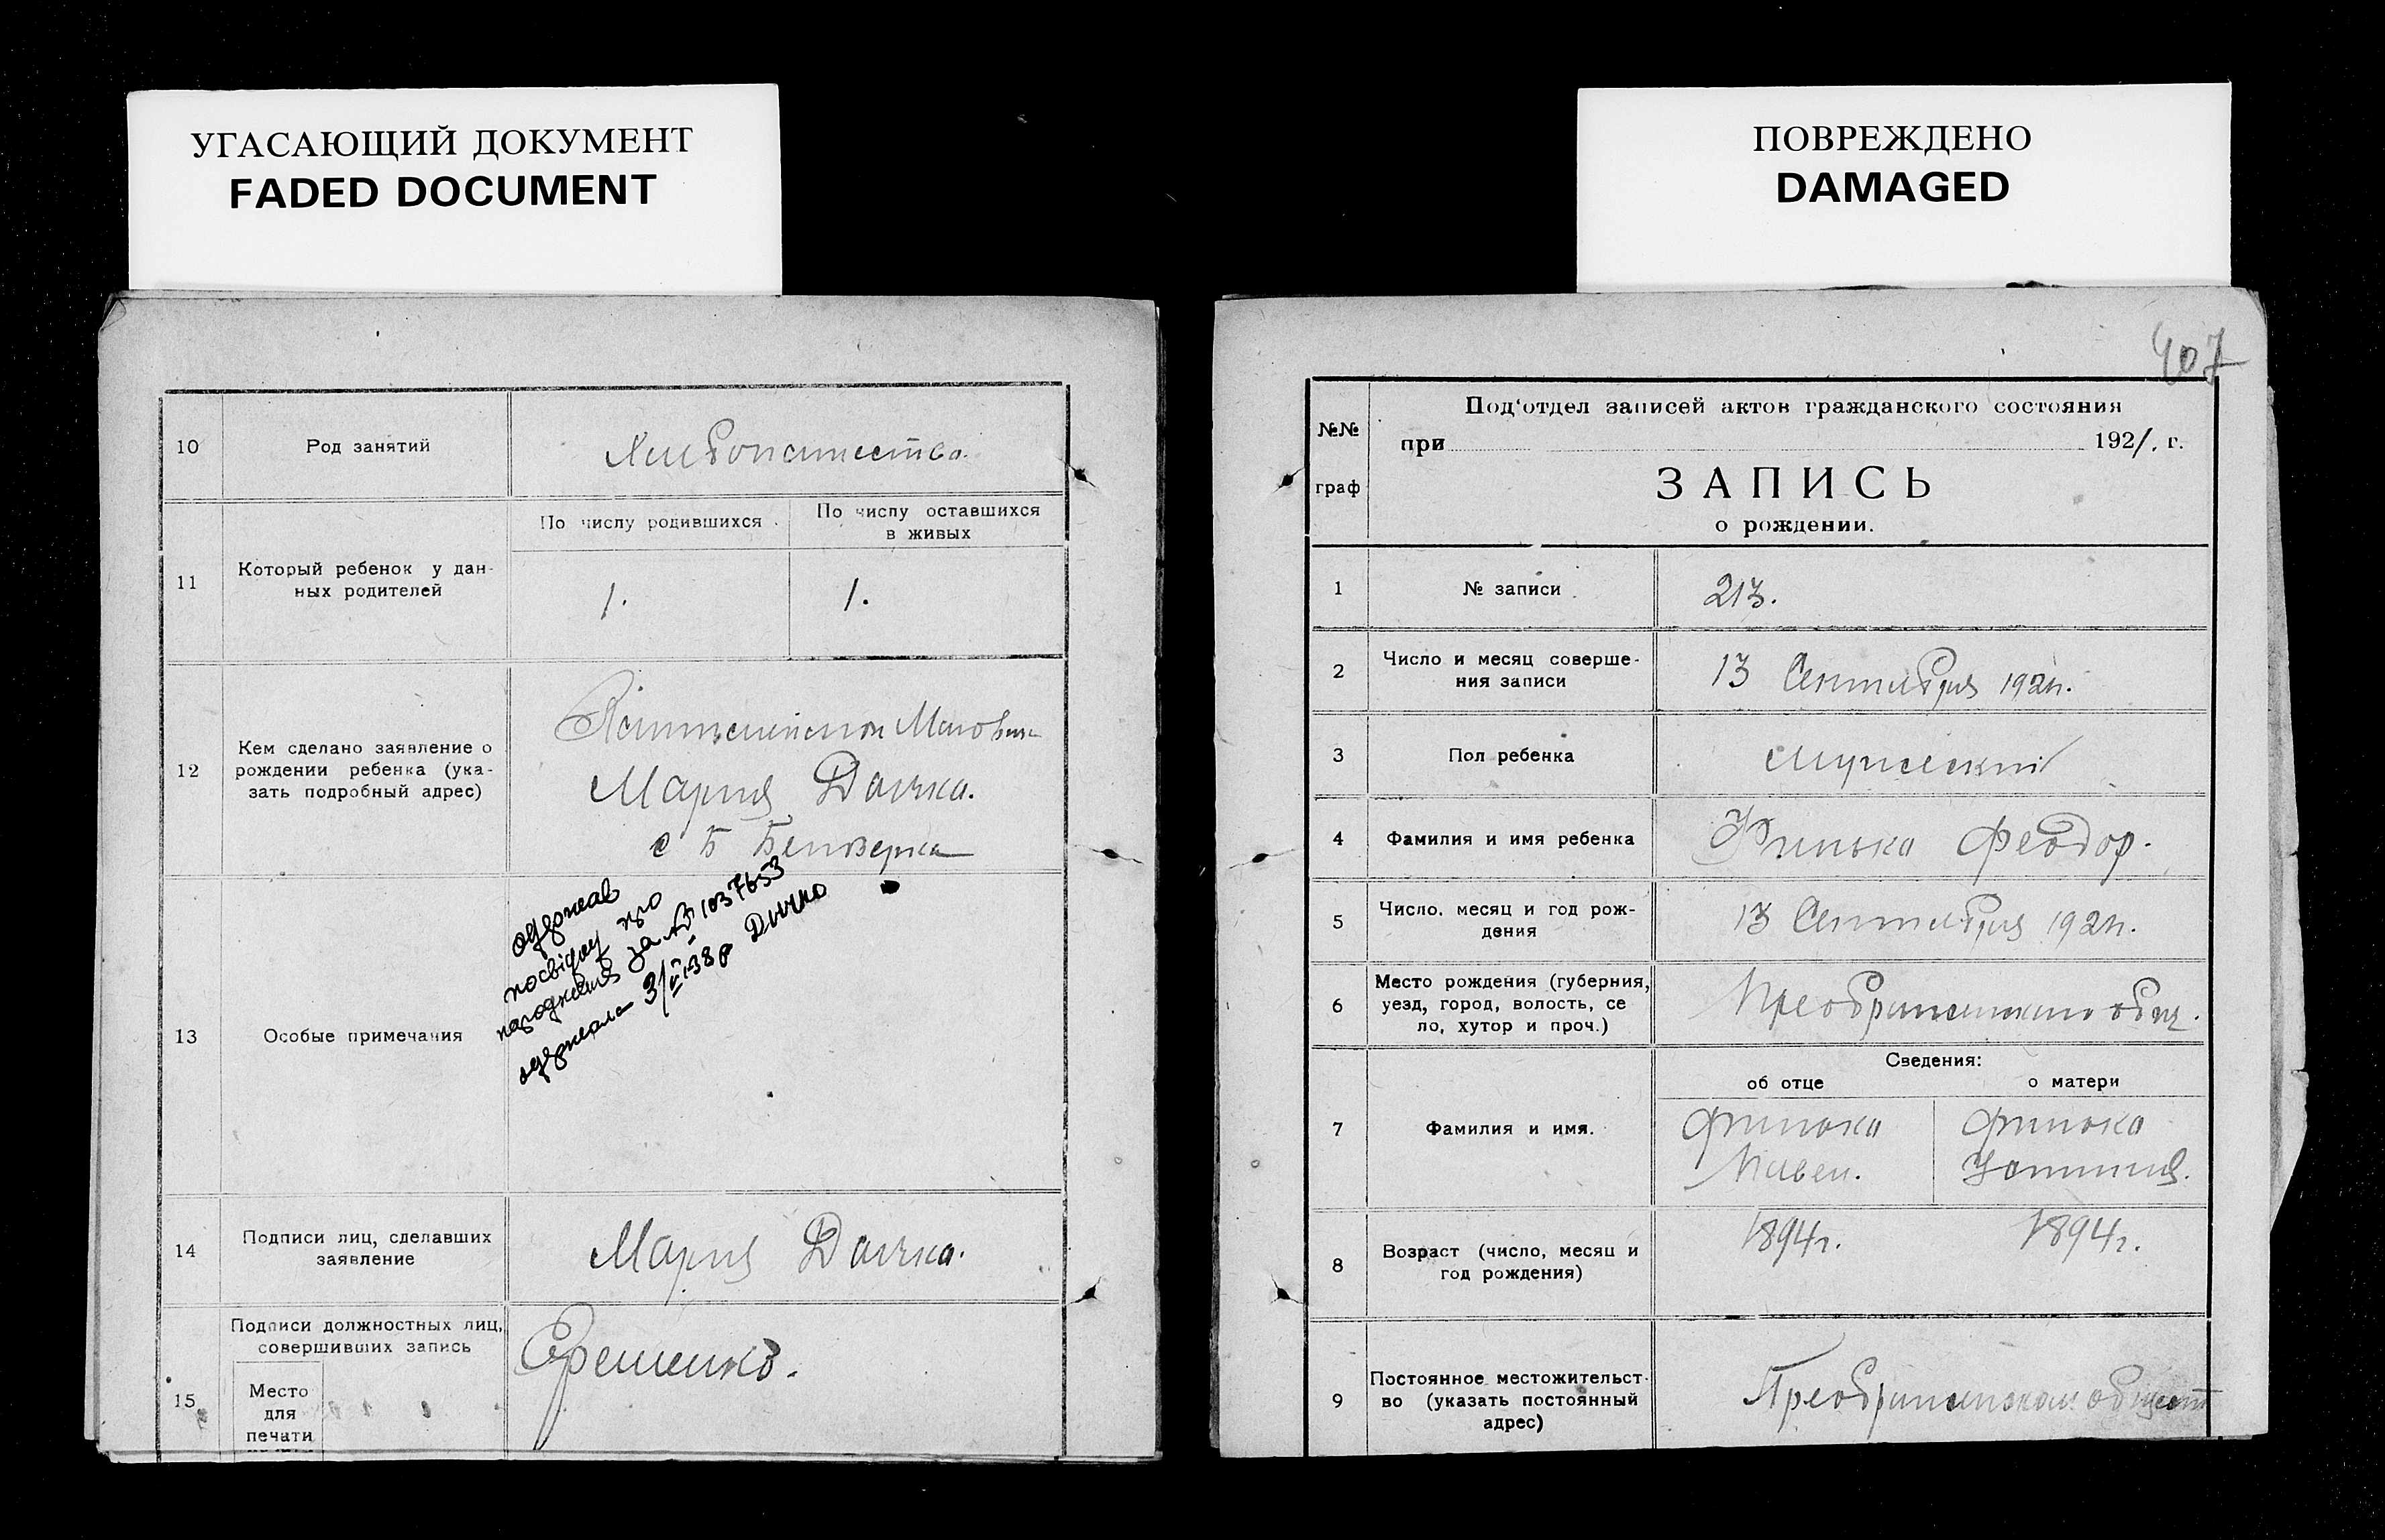 УГАСАЮЩИЙ ДОКУМЕНТ
FADED DOCUMENT
10
Род занятий
11
Который ребенок у дан-
ных родителей
По числу родившихся
По числу оставшихся
в живых
1.
1.
12
Кем сделано заявление о
рождении ребенка (ука-
зать подробный адрес)
Мария Дачка.
с Б Белозерка
13
Особые примечания
одержав
посвідку про
народження за № 1037653
одержала 3/II-38р
14
Подписи лиц, сделавших
заявление
Мария Дачка.
15
Подписи должностных лиц,
совершивших запись
Место
для
печати
Еременко.
ПОВРЕЖДЕНО
DAMAGED
407
№№
граф
Под‘отдел записей актов гражданского состояния
при 1921. г.
ЗАПИСЬ
о рождении.
1
№ записи
213.
2
Число и месяц соверше-
ния записи
13 Сентября 1921г.
3
Пол ребенка
мужеский
4
Фамилия и имя ребенка
Финька Феодор.
5
Число. месяц и год рож-
дения
13 Сентября 1921г.
6
Место рождения (губерния,
уезд, город, волость, се
ло, хутор и проч.)
7
Фамилия и имя.
Сведения:
об отце
о матери
Финька
Павел.
Финька
8
Возраст (число, месяц и
год рождения)
1894г.
1894г.
9
Постоянное местожительст-
во (указать постоянный
адрес)